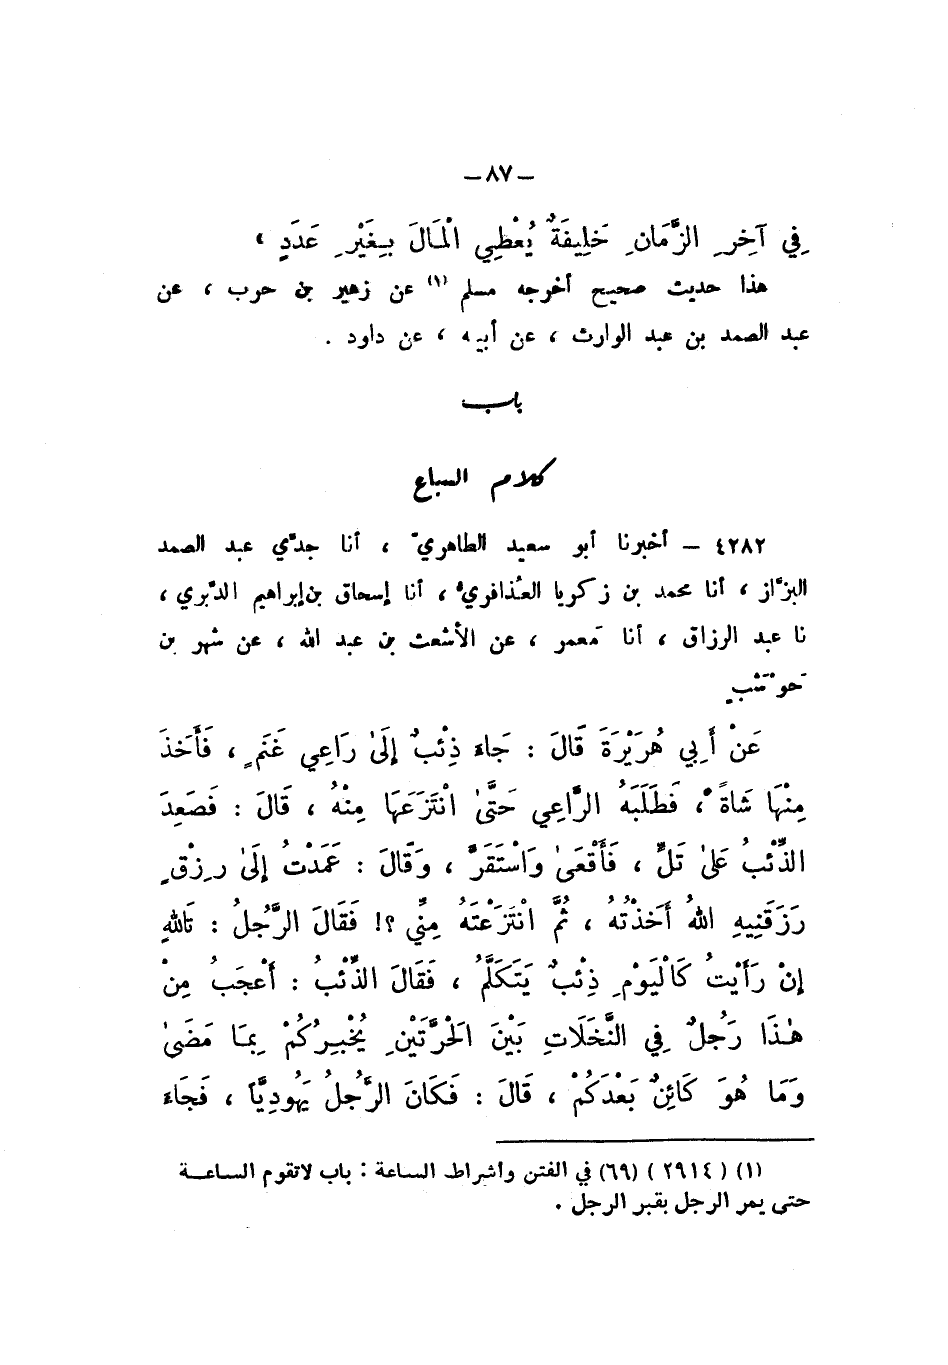 – ٨٧ –
فِي آخِرِ الزَّمَانِ خَلِيفَةٌ يُعْطِي الْمَالَ بِغَيْرِ عَدَدٍ »
هذا حديث صحيح أخرجه مسلم (١) عن زهير بن حرب ، عن
عبد الصمد بن عبد الوارث ، عن أبيه ، عن داود .
باب
كلام السباع
٤٢٨٢ – أخبرنا أبو سعيد الطاهريّ ، أنا جدّي عبد الصمد
البزّاز ، أنا محمد بن زكريا العُذافريُّ ، أنا إسحاق بن إبراهيم الدَّبري ،
نا عبد الرزاق ، أنا مَعمر ، عن الأشعث بن عبد الله ، عن شهر بن
حَوْشَبٍ
عَنْ أَبِي هُرَيْرَةَ قَالَ : جَاءَ ذِئْبٌ إِلَىٰ رَاعِي غَنَمٍ ، فَأَخَذَ
مِنْهَا شَاةً ، فَطَلَبَهُ الرَّاعِي حَتَّىٰ انْتَزَعَهَا مِنْهُ ، قَالَ : فَصَعِدَ
الذِّئْبُ عَلَىٰ تَلٍّ ، فَأَقْعَىٰ وَاسْتَقَرَّ ، وَقَالَ : عَمَدْتُ إِلَىٰ رِزْقٍ
رَزَقَنِيهِ اللهُ أَخَذْتُهُ ، ثُمَّ انْتَزَعْتَهُ مِنِّي ؟! فَقَالَ الرَّجُلُ : تَاللهِ
إِنْ رَأَيْتُ كَالْيَوْمِ ذِئْبٌ يَتَكَلَّمُ ، فَقَالَ الذِّئْبُ : أَعْجَبُ مِنْ
هٰذَا رَجُلٌ فِي النَّخَلَاتِ بَيْنَ الْحَرَّتَيْنِ يُخْبِرُكُمْ بِمَا مَضَىٰ
وَمَا هُوَ كَائِنٌ بَعْدَكُمْ ، قَالَ : فَكَانَ الرَّجُلُ يَهُودِيًّا ، فَجَاءَ
(١) ( ٢٩١٤ ) (٦٩) في الفتن وأشراط الساعة : باب لاتقوم الساعة
حتى يمر الرجل بقبر الرجل .